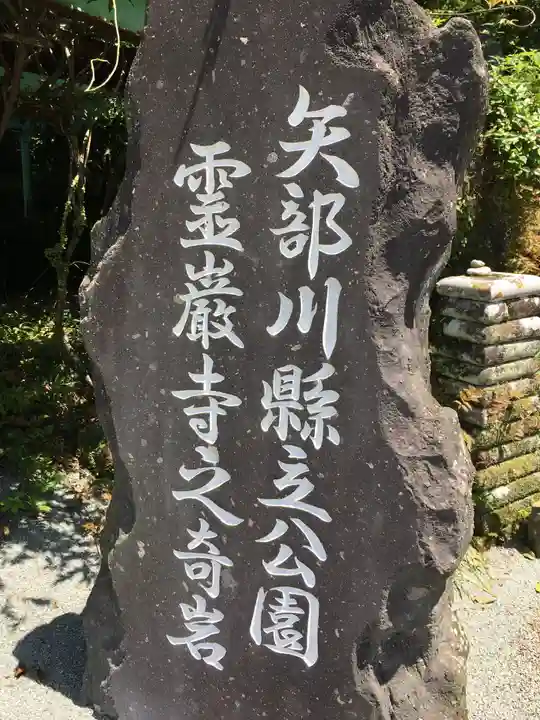 矢部川縣立公園
霊巌寺之奇岩